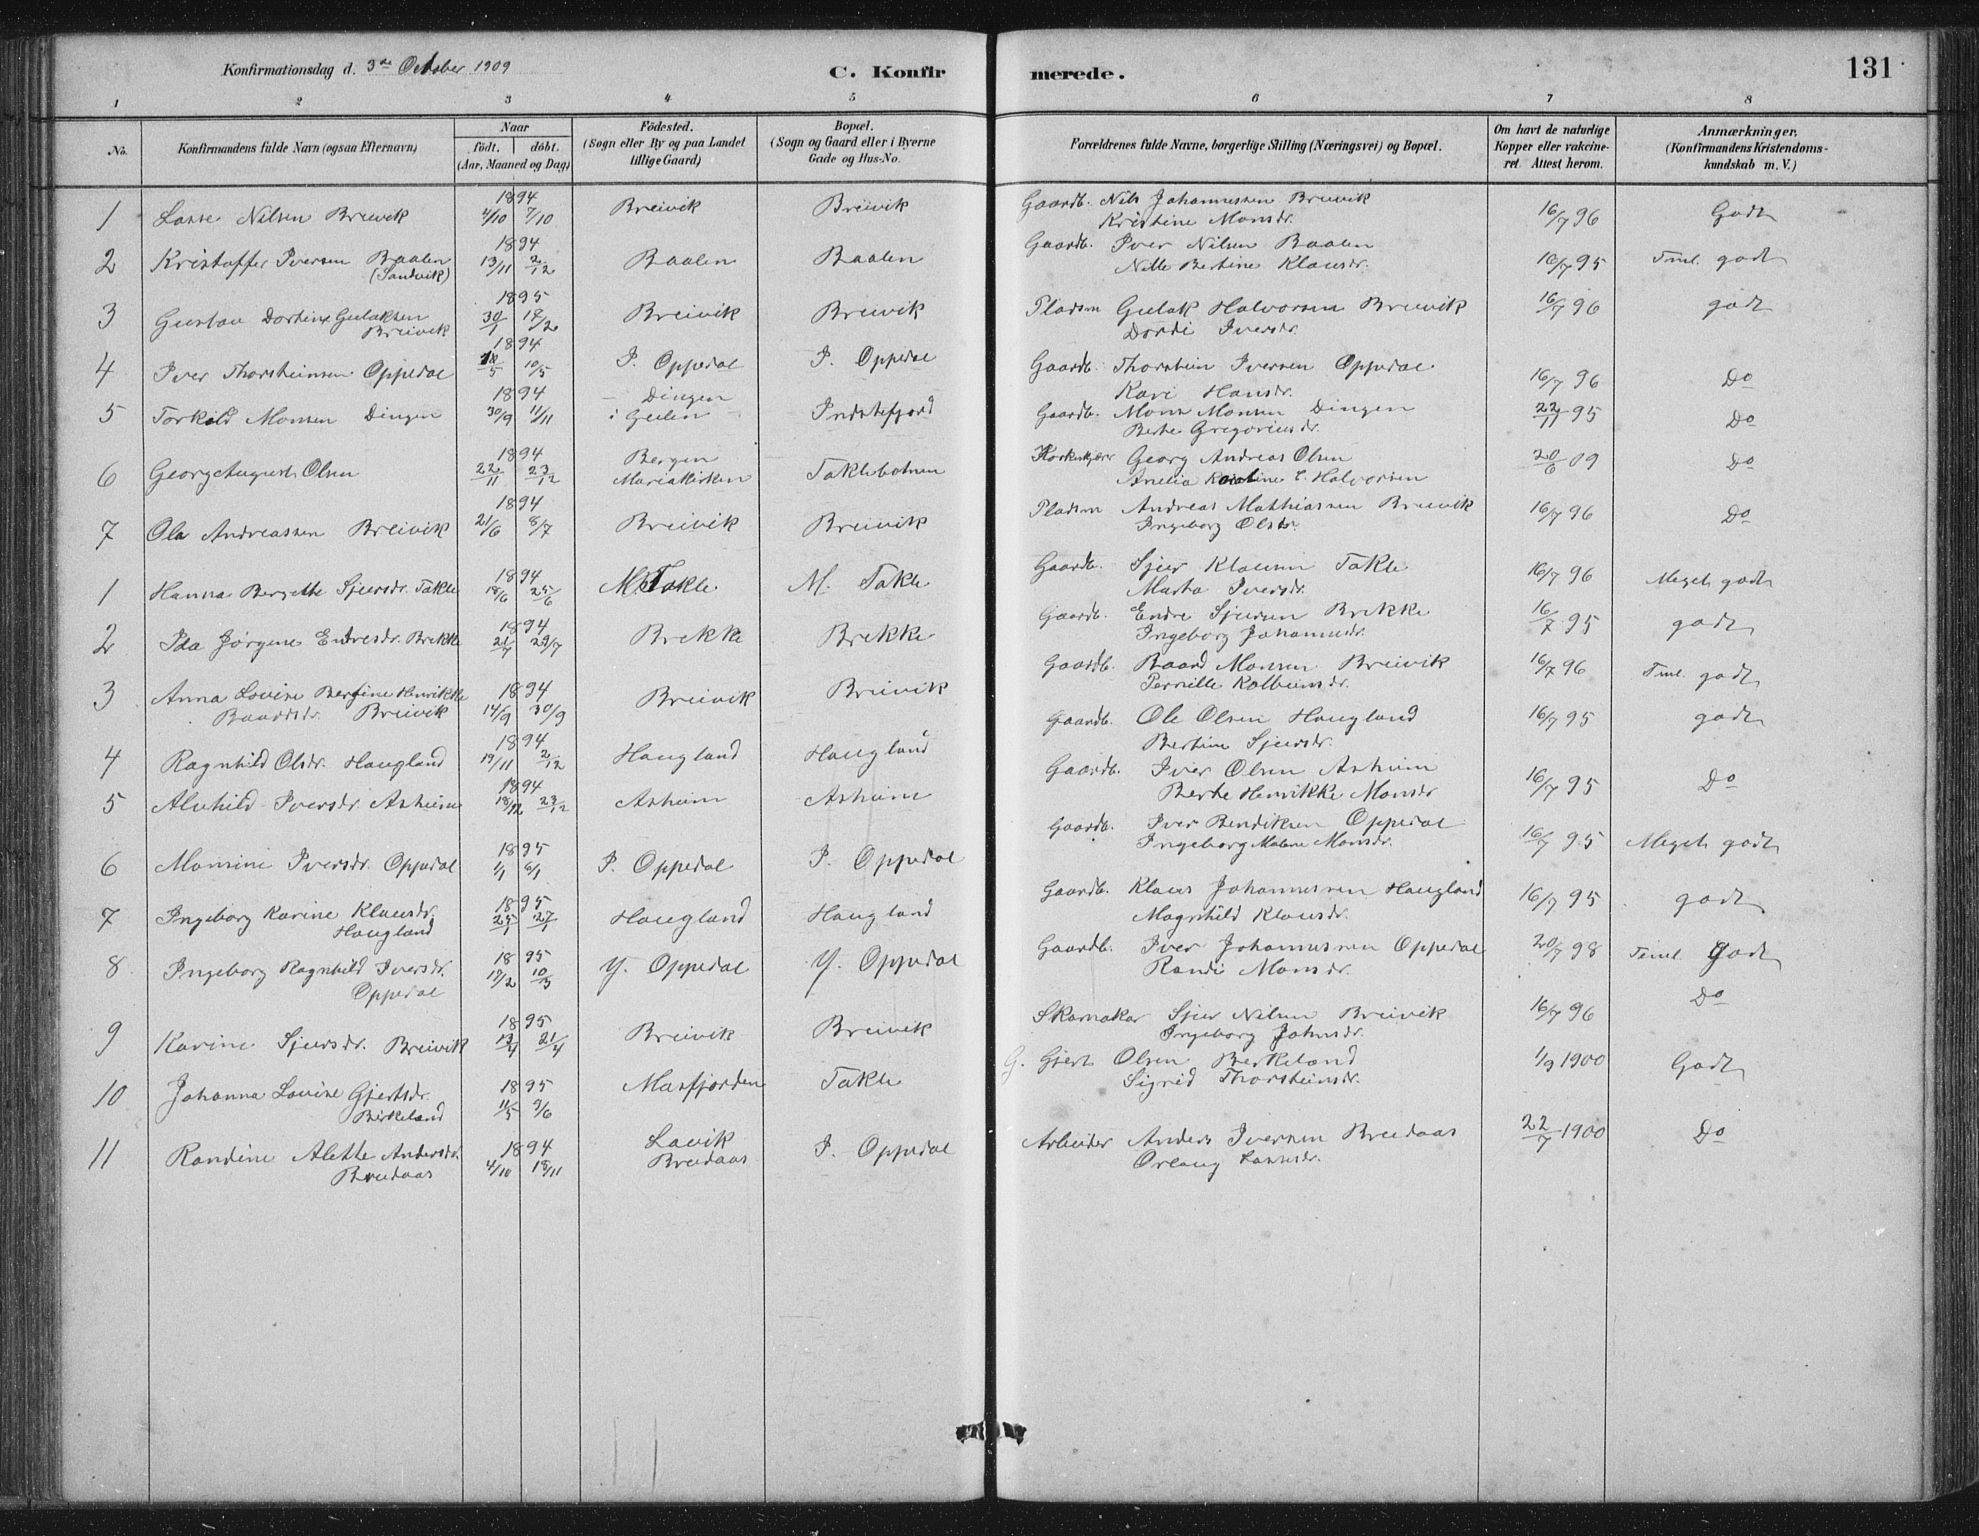 Konfirmationsdag d. 3de October 1909
C. Konfirmerede.
131
1 2 3 4 5 6 7 8
No.
Konfirmandens fulde Navn (ogsaa Efternavn)
Naar
født. | døbt.
(Aar, Maaned og Dag)
Födested.
(Sogn eller By og paa Landet
tillige Gaard)
Bopæl.
(Sogn og Gaard eller i Byerne
Gade og Hus-No.
Forældrenes fulde Navne, borgerlige Stilling (Næringsvei) og Bopæl.
Om havt de naturlige
Kopper eller vakcine-
ret. Attest herom.
Anmærkninger.
(Konfirmandens Kristendoms-
kundskab m. V.)
1 Lasse Nilsen Breivik 1894 4/10 7/10 Breivik Breivik Gaardb. Nils Johannessen Breivik 16/7 96 Godt
Kristine Monsdr.
2 Kristoffer Iversen Baalen 1894 13/11 2/12 Baalen Baalen Gaardb. Iver Nilsen Baalen 16/7 95 Tml. godt
(Sandvik) Nille Bertine Klausdr.
3 Gustav Dortinx Gulaksen 1895 30/1 17/2 Breivik Breivik Pladsm Gulak Halvorsen Breivik 16/7 96 godt
Breivik Dordi Iversdr.
4 Iver Thorsteinsen Oppedal 1894 10/5 I. Oppedal I. Oppedal Gaardb. Thorstein Iversen Oppedal 16/7 96 Do
Kari Hansdr.
5 Torkild Monsen Dingen 1894 30/9 11/11 Dingen i Gulen Indrefjord Gaardb. Mons Monsen Dingen 22/11 95 Do
Berte Gregoriusdr.
6 Georg August Olsen 1894 22/11 23/12 Bergen Mariakirken Taklebotnen Georg Andreas Olsen 20/6 09 Do
Amelia Karoline E. Halvorsen
7 Ola Andreassen Breivik 1894 21/6 8/7 Breivik Breivik Pladsm Andreas Mathiassen Breivik 16/7 96 Do
Ingeborg Olsdr.
1 Hanna Bergitte Sjursdr. Takle 1894 18/6 25/6 M. Takle M. Takle Gaardb. Sjur Klausen Takle 16/7 96 Meget godt
Marta Iversdr.
2 Ida Jørgine Endresdr. Brekke 1894 21/7 29/7 Brekke Brekke Gaardb. Endre Sjursen Brekke 16/7 95 godt
Ingeborg Johannesdr.
3 Anna Lovise Bertine Henrikke 1894 14/9 30/9 Breivik Breivik Gaardb. Baard Monsen Breivik 16/7 96 Tml. godt
Baardsdr. Breivik Pernille Kolbeinsdr.
4 Ragnhild Olsdr. Haugland 1894 19/11 2/12 Haugland Haugland Gaardb. Ole Olsen Haugland 16/7 95 godt
Bertine Sjursdr.
5 Alvhild Iversdr. Asheim 1894 18/12 23/12 Asheim Asheim Gaardb. Iver Olsen Asheim 16/7 95 Do
Berte Henrikke Monsdr
6 Monsine Iversdr. Oppedal 1895 1/1 6/1 I. Oppedal I. Oppedal Gaardb. Iver Bendiksen Oppedal 16/7 95 Meget godt
Ingeborg Malene Monsdr.
7 Ingeborg Karine Klausdr. 1895 25/1 27/1 Haugland Haugland Gaardb. Klaus Johannesen Haugland 16/7 95 godt
Haugland Magnhild Klausdr.
8 Ingeborg Ragnhild Iversdr. 1895 17/2 10/3 Y. Oppedal Y. Oppedal Gaardb. Iver Johannesen Oppedal 20/7 98 Tml. Godt
Oppedal Randi Monsdr.
9 Karine Sjursdr. Breivik 1895 13/4 21/4 Breivik Breivik Skomakar Sjur Nilsen Breivik 16/7 96 Do
Ingeborg Johnsdr.
10 Johanna Lovise Gjertsdr. 1895 11/5 3/6 Masfjorden Takle G. Gjert Olsen Berkeland 1/9 1900 Godt
Birkeland Sigrid Thorsteinsdr.
11 Randine Alette Andersdr. 1894 4/10 18/11 Lavik Breidaas I. Oppedal Arbeider Anders Iversen Breidaas 22/7 1900 Do
Breidaas Orlaug Lassesdr.